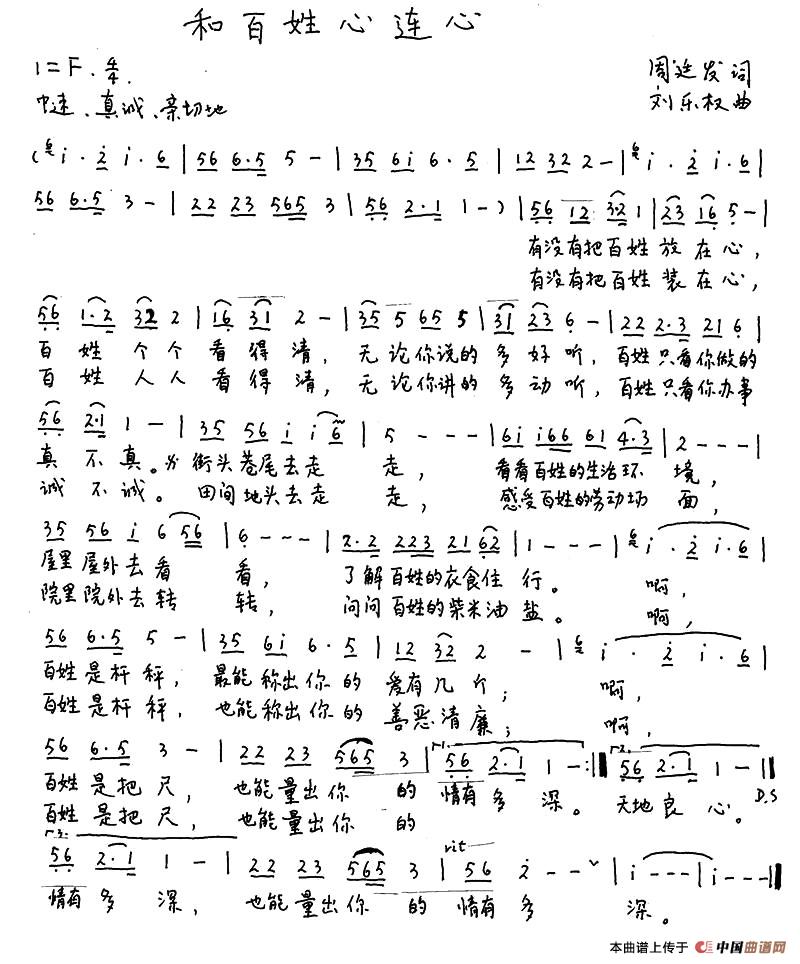 和百姓心连心
1=F. 4/4.
周廷发 词
中速、真诚、亲切地
刘乐权 曲
(i·2 i·6 | 56 6·5 5 - | 35 6i 6·5 | 12 32 2 - | i·2 i·6 |
56 6·5 3 - | 22 23 565 3 | 56 2·1 1 - ) | 56 12 32 1 | 23 16 5 - |
有没有把百姓放在心，
有没有把百姓装在心，
56 1·2 32 2 | 16 31 2 - | 35 5 65 5 | 31 23 6 - | 22 2·3 21 6 |
百姓个个看得清，无论你说的多好听，百姓只看你做的
百姓人人看得清，无论你讲的多动听，百姓只看你办事
56 2·1 1 - | 35 56 i i6 | 5 - - - | 6i i66 61 4·3 | 2 - - - |
真不真。街头巷尾去走走，看看百姓的生活环境，
诚不诚。田间地头去走走，感受百姓的劳动场面，
35 56 i 6 56 | 6 - - - | 2·2 223 21 62 | 1 - - - | i·2 i·6 |
屋里屋外去看看，了解百姓的衣食住行。啊，
院里院外去转转，问问百姓的柴米油盐。啊，
56 6·5 5 - | 35 6i 6·5 | 12 32 2 - | i·2 i·6 |
百姓是杆秤，最能称出你的爱有几个；啊，
百姓是杆秤，也能称出你的善恶清廉；啊，
56 6·5 3 - | 22 23 565 3 | 1. 56 2·1 1 - :| 2. 56 2·1 1 - ||
百姓是把尺，也能量出你的情有多深。天地良心。D.S
百姓是把尺，也能量出你的
3.
rit
56 2·1 1 - | 22 23 565 3 | 56 2 - - | i - - - | i - - - ||
情有多深，也能量出你的情有多深。
本曲谱上传于 中国曲谱网